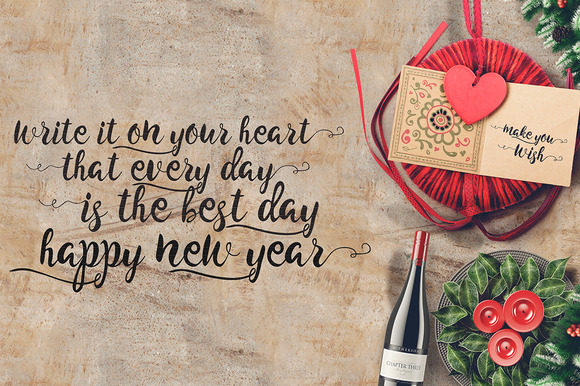 write it on your heart
that every day
is the best day
happy new year
make you
Wish
CHAPTER THREE